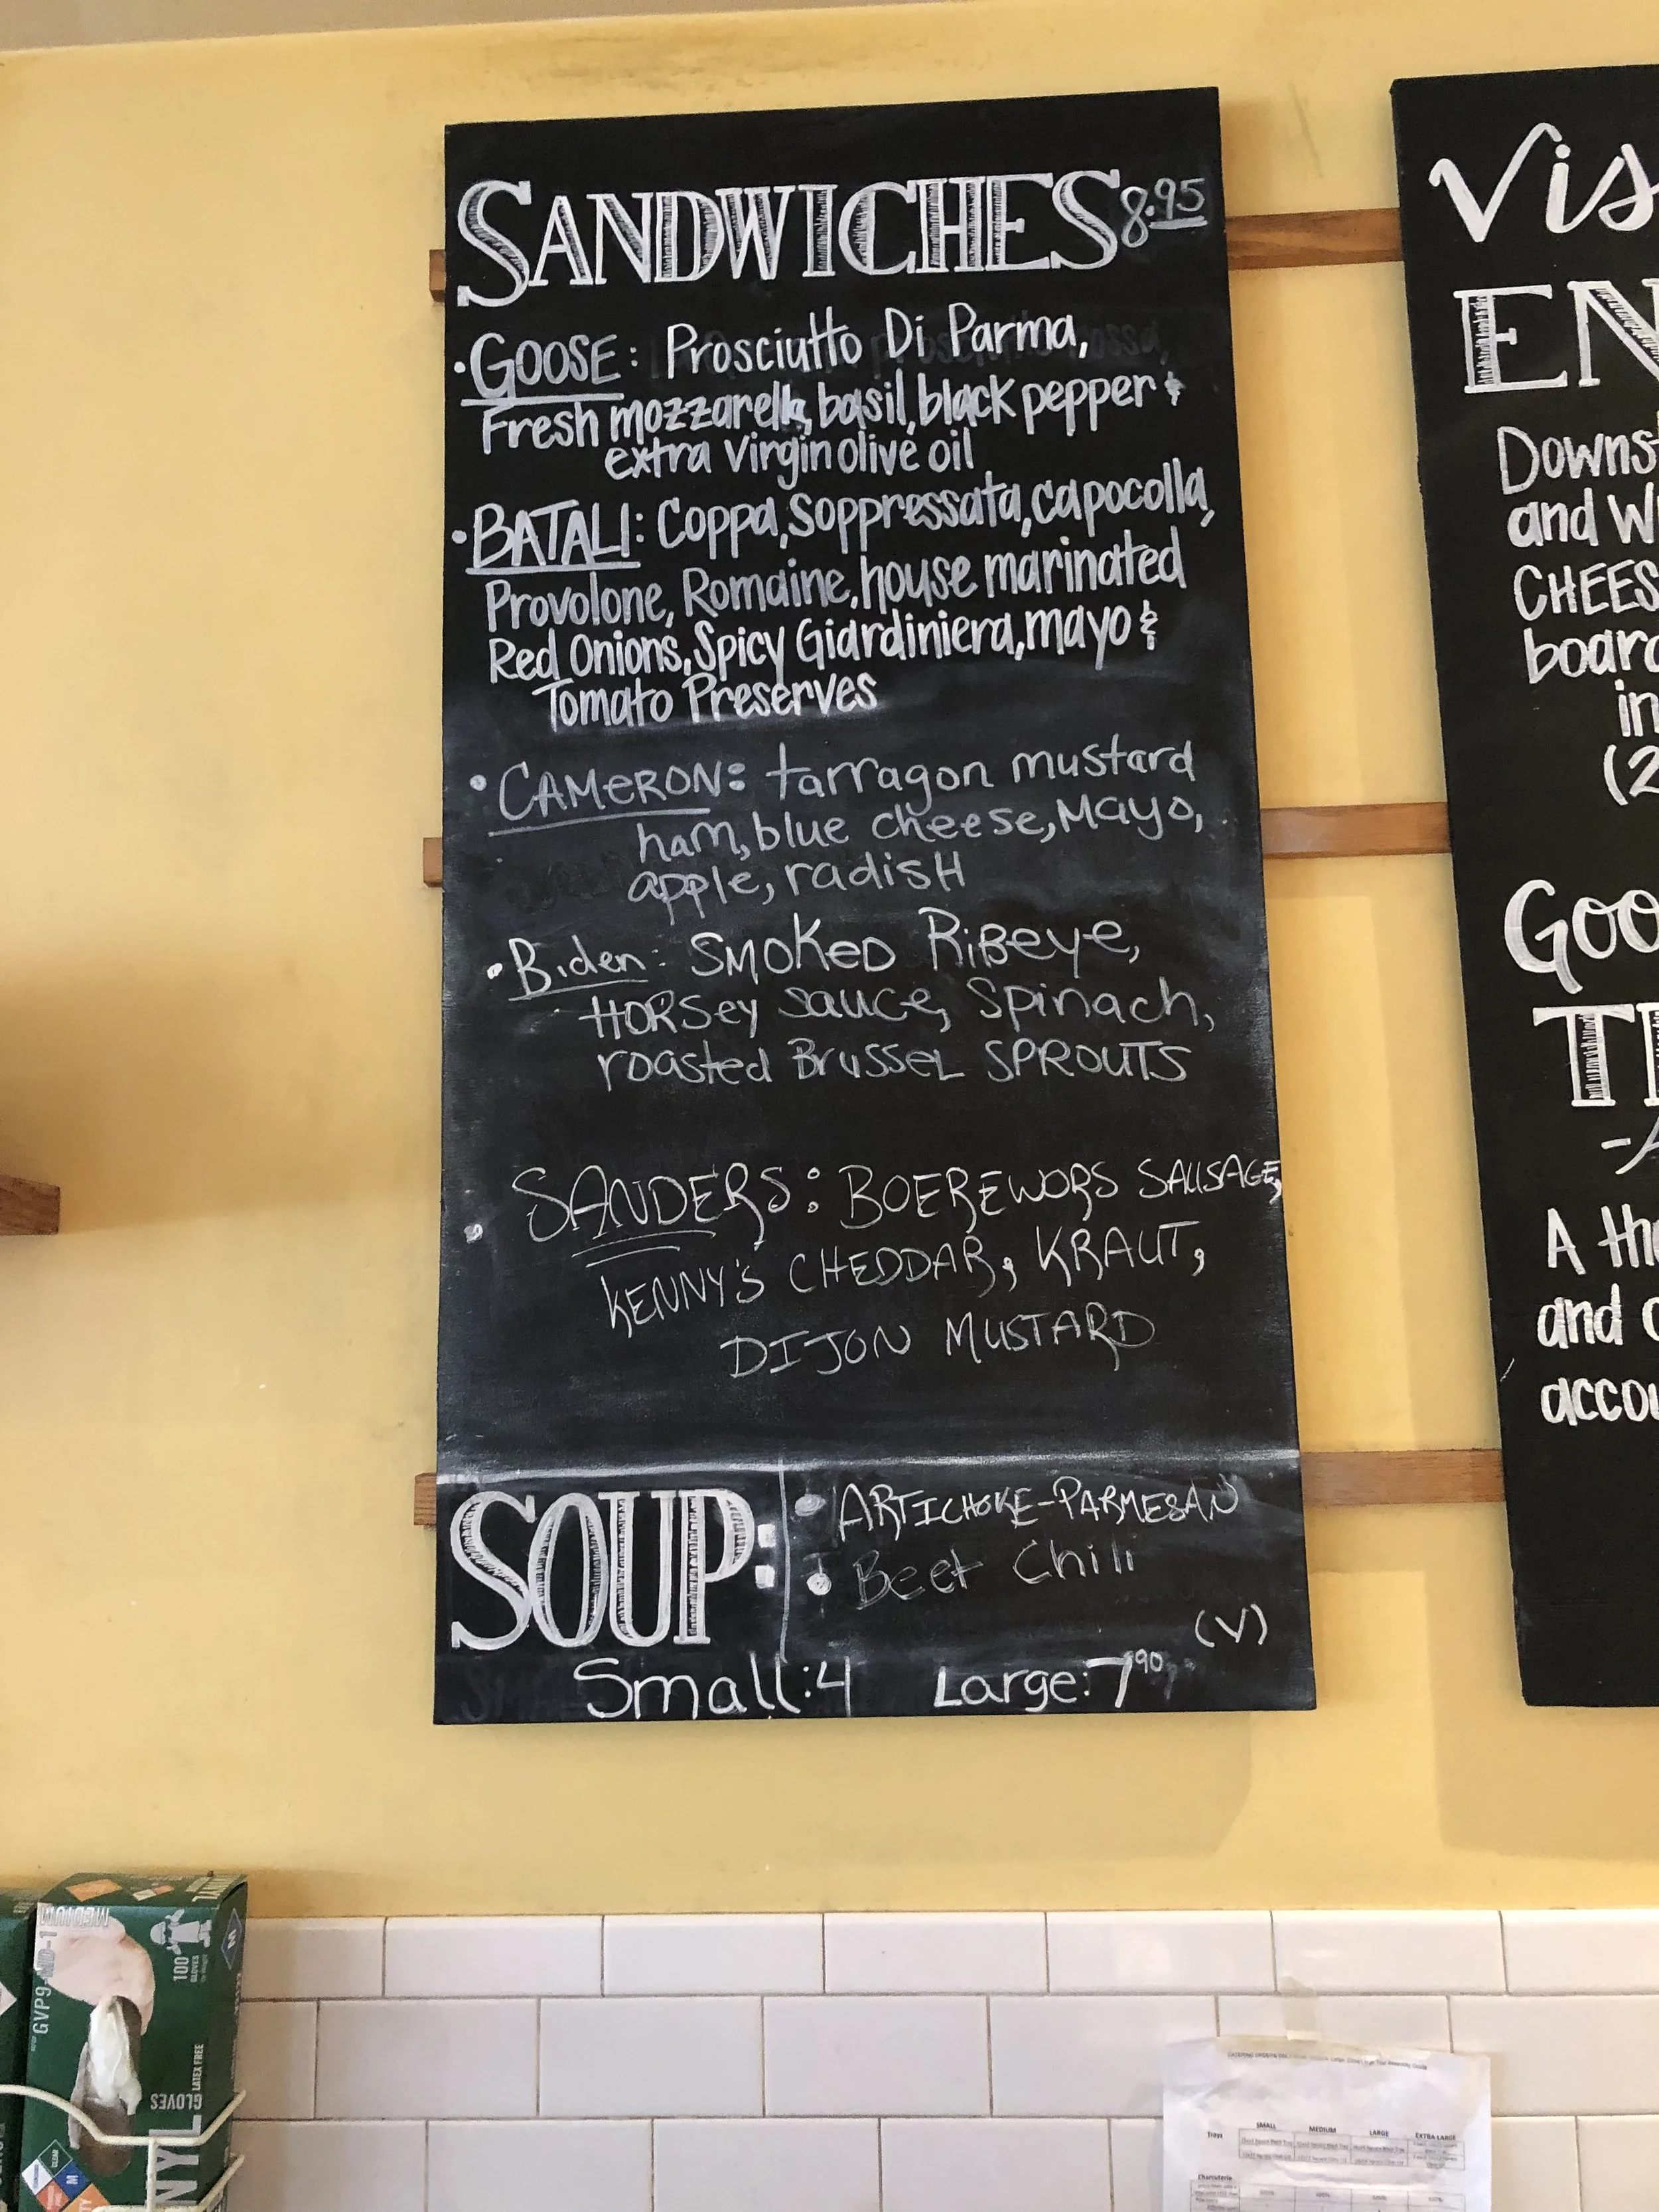 SANDWICHES 8.95
• GOOSE: Prosciutto Di Parma,
Fresh mozzarella, basil, black pepper &
extra virgin olive oil
• BATALI: Coppa, Soppressata, capocolla,
Provolone, Romaine, house marinated
Red Onions, Spicy Giardiniera, mayo &
Tomato Preserves
• CAMERON: tarragon mustard
ham, blue cheese, Mayo,
apple, radisH
• Biden: SMOKED RiBeye,
HORSey sauce, Spinach,
roasted BrusseL SPROUTS
• SANDERS: BOEREWORS SAUSAGE,
KENNY'S CHEDDAR, KRAUT,
DIJON MUSTARD
SOUP:
• ARTICHOKE-PARMESAN
• Beet Chili
(V)
Small: 4 Large: 7 90
Vis
EN
Downst
and W
CHEES
board
in
(2
Goo
T
-A
A the
and c
accou
MEDIUM
GVP9-MD-1
100
GLOVES
M
LATEX FREE
GLOVES
NYL
M
SMALL MEDIUM LARGE EXTRA LARGE
Trays
Charcuterie